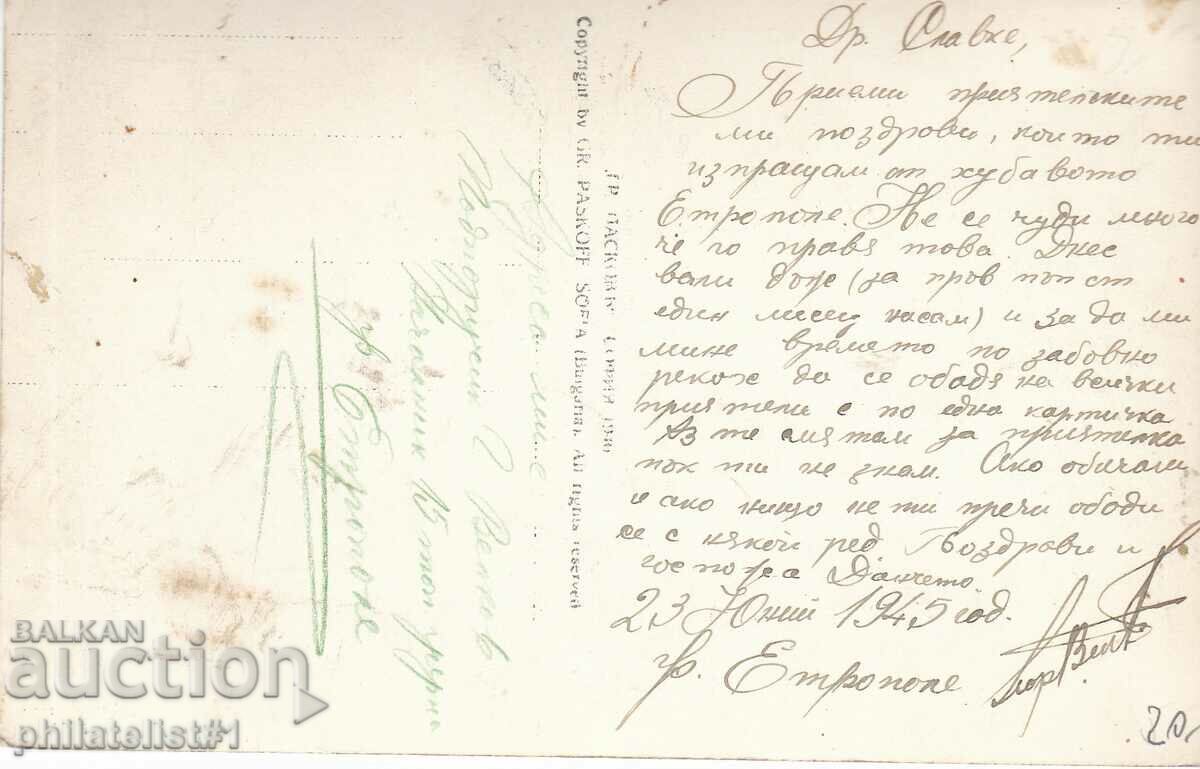 Др. Славке,
Приеми приятелските
ми поздрави, които ти
изпращам от хубавото
Етрополе. Не се чуди много
че го правя това. Днес
вали дъже (за пръв път от
един месец насам) и за да ми
мине времето по забовно
рекох да се обадя на всички
приятели с по една картичка
Аз те смятам за приятелка
пък ти не знам. Ако обичаш
и ако нищо не ти пречи обади
се с някой ред. Поздрави и
госпожа Данчето
23 Юний 1945 год.
гр. Етрополе
ГР. ПАСКОВЪ СОФИЯ
Copyright by GR. PASKOFF SOFIA (Bulgaria). All rights reserved
Адреса ми е
Подпоручик Велков
Началник 15
гр Етрополе
20.
BALKAN
auction
philatelist#1